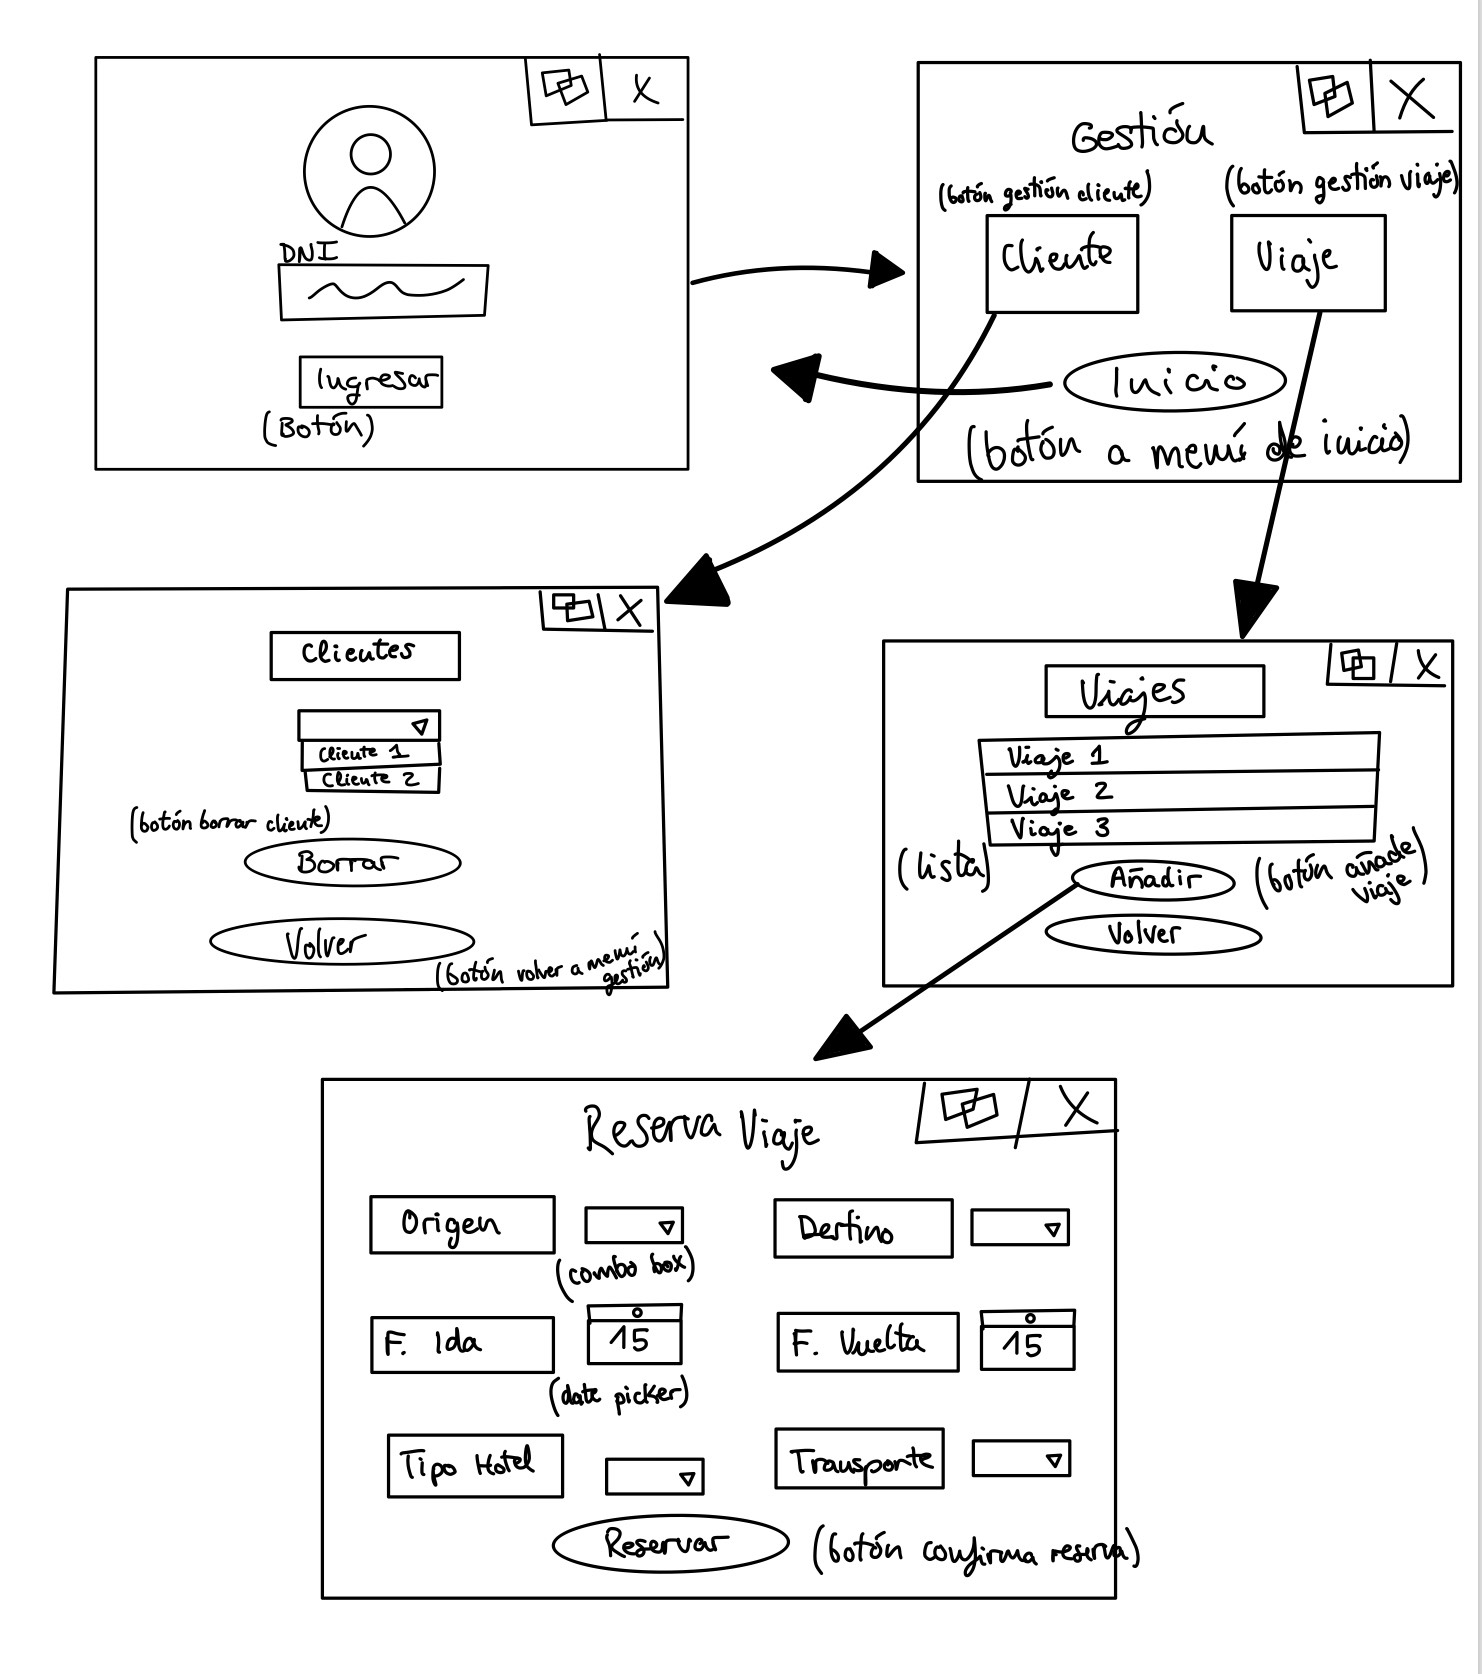 DNI
Ingresar
(Botón)
Gestión
(botón gestión cliente)
(botón gestión viaje)
Cliente
Viaje
Inicio
(botón a menú de inicio)
Clientes
Cliente 1
Cliente 2
(botón borrar cliente)
Borrar
Volver
(botón volver a menú
gestión)
Viajes
Viaje 1
Viaje 2
Viaje 3
(lista)
Añadir
(botón añade
viaje)
Volver
Reserva Viaje
Origen
(combo box)
Destino
F. Ida
15
(date picker)
F. Vuelta
15
Tipo Hotel
Transporte
Reservar
(botón confirma reserva)